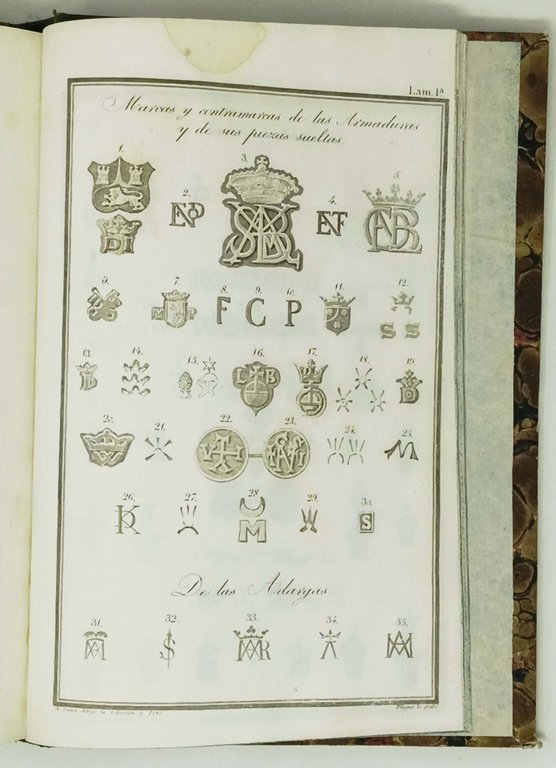 Lam. 1ª
Marcas y contramarcas de las Armaduras
y de sus piezas sueltas.
1. 2. 3. 4. 5.
EF
6. 7. 8. 9. 10. 11. 12.
F C P
S S
13. 14. 15. 16. 17. 18. 19.
L B
20. 21. 22. 23. 24. 25.
M
26. 27. 28. 29. 30.
K
M
S
De las Adargas.
31. 32. 33. 34. 35.